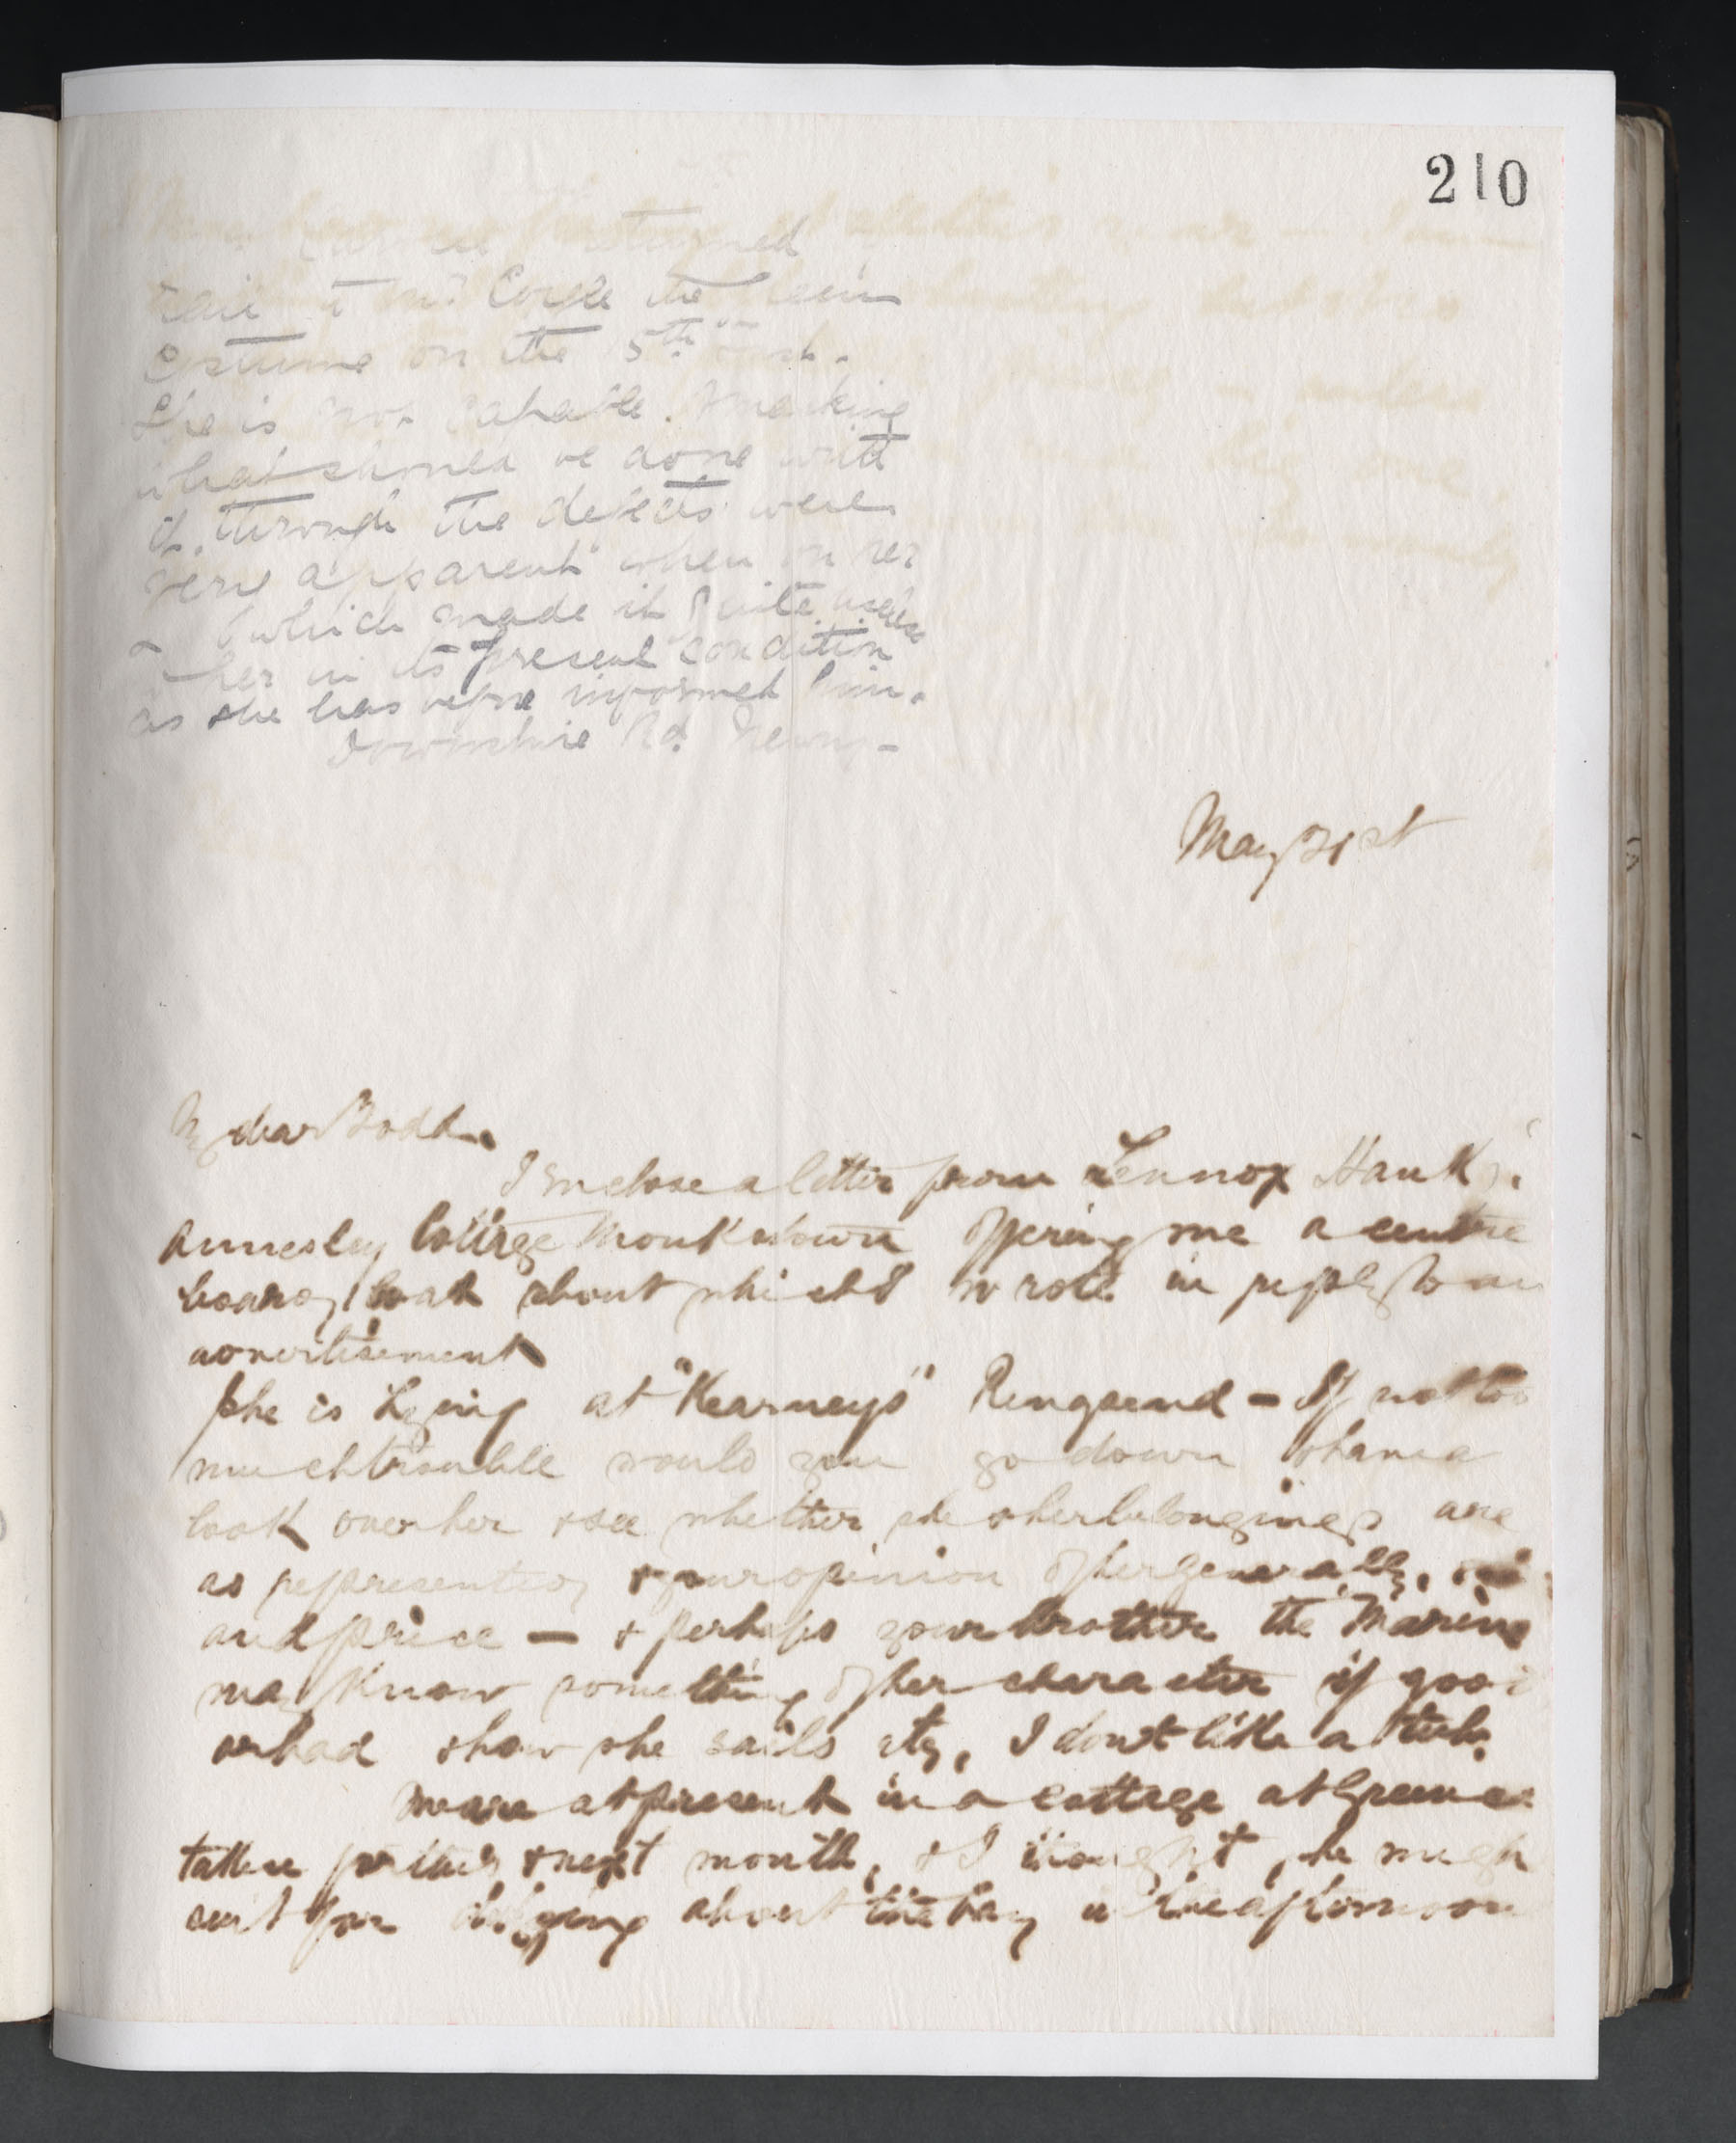 210
returned
to Mr the
Costume on the 5th inst.
She is not capable making
what should be done with
it through the defects were
very apparent when on her
& which made it quite useless
to her in its present condition
as she has before informed him.
Downshire Rd. Newry -
May 31st
My dear Todd
I enclose a letter from Lennox Hawks
Annesley Cottage Monkstown offering me a centre
board boat about which I wrote in reply to an
advertisement
She is lying at "Kearneys" Ringsend - If not too
much trouble would you go down & have a
look over her & see whether she & her belongings are
as represented & your opinion of her generally,
and price - & perhaps your brother the Marine
may know something of her character if good
or bad & how she sails etc, I don't like a tub.
We are at present in a cottage at
taken for this & next month, & I thought she might
suit for about the bay in the afternoon